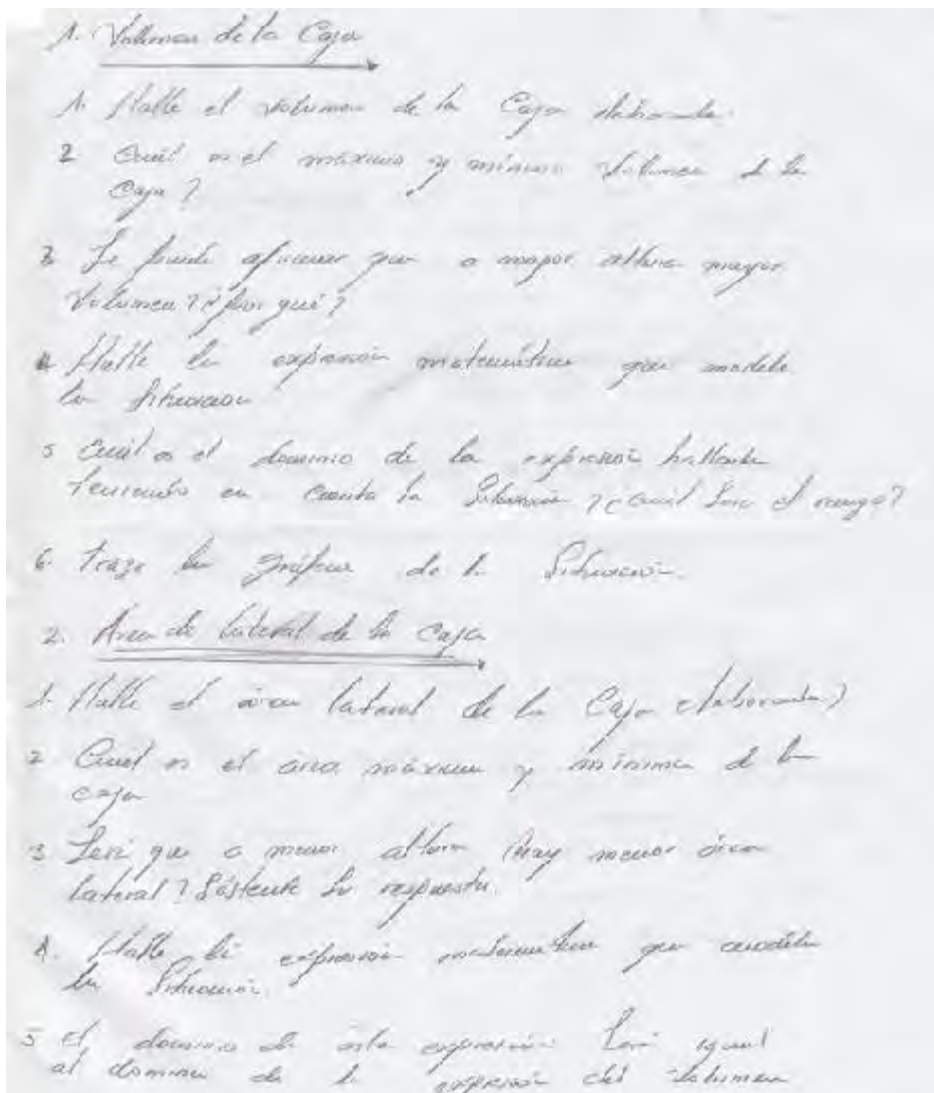 1. Volumen de la Caja
1. Halle el volumen de la Caja elaborada.
2 Cuál es el máximo y mínimo Volumen de la
Caja?
3 Se puede afirmar que a mayor altura mayor
Volumen? ¿por qué?
4 Halle la expresión matemática que modela
la Situación
5 Cuál es el dominio de la expresión hallada
teniendo en cuenta la Situación? ¿Cuál será el rango?
6. Traze la gráfica de la Situación.
2. Area de lateral de la caja
1. Halle el área lateral de la Caja elaborada)
2 Cual es el area máxima y mínima de la
caja
3 Será que a menor altura hay menor área
lateral? Sustente su respuesta.
4. Halle la expresión matemática que modela
la Situación.
5 El dominio de esta expresión Será igual
al dominio de la expresión del Volumen